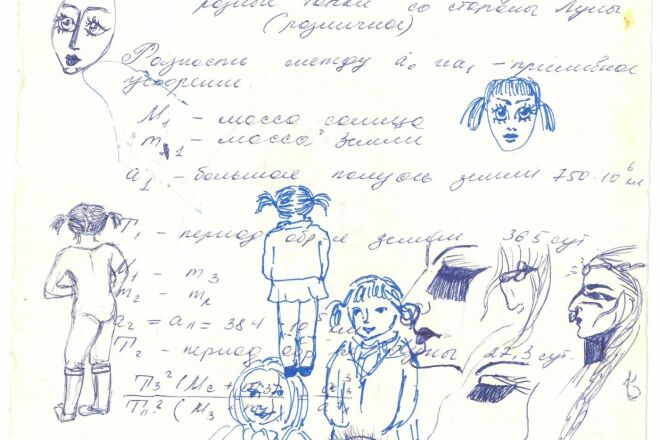 разные точки со стороны Луны
(различное)
Разность между a₀ и a₁ - приливное
ускорение
M₁ - масса солнца
m₁ - масса Земли
a₁ - большая полуось земли 150·10⁶ км
T₁ - период обр-я земли 365 сут
M₁ - m₃
m₂ - mл
a₂ = aл = 384·10³ км
T₂ - период обр Луны 27,3 сут.
T₃² (Mс +
Tл² ( M₃